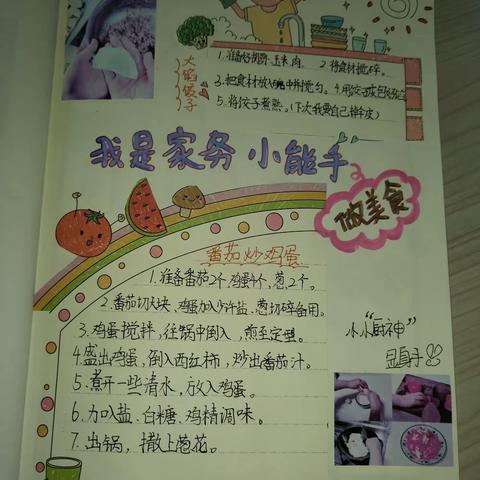 大馅饺子
1.准备好胡萝卜、玉米、肉。 2.将食材搅碎。
3.把食材放入碗中拌搅匀。 4.用饺子皮包好
5.将饺子煮熟。(下次我要自己擀皮)
我是家务小能手
做美食
番茄炒鸡蛋
1.准备番茄2个,鸡蛋4个,葱2个。
2.番茄切块、鸡蛋加少许盐、葱切碎备用。
3.鸡蛋搅拌,往锅中倒入,煎至定型。
4.盛出鸡蛋,倒入西红柿,炒出番茄汁。
5.煮开一些清水,放入鸡蛋。
6.加入盐、白糖、鸡精调味。
7.出锅,撒上葱花。
小小“厨神”